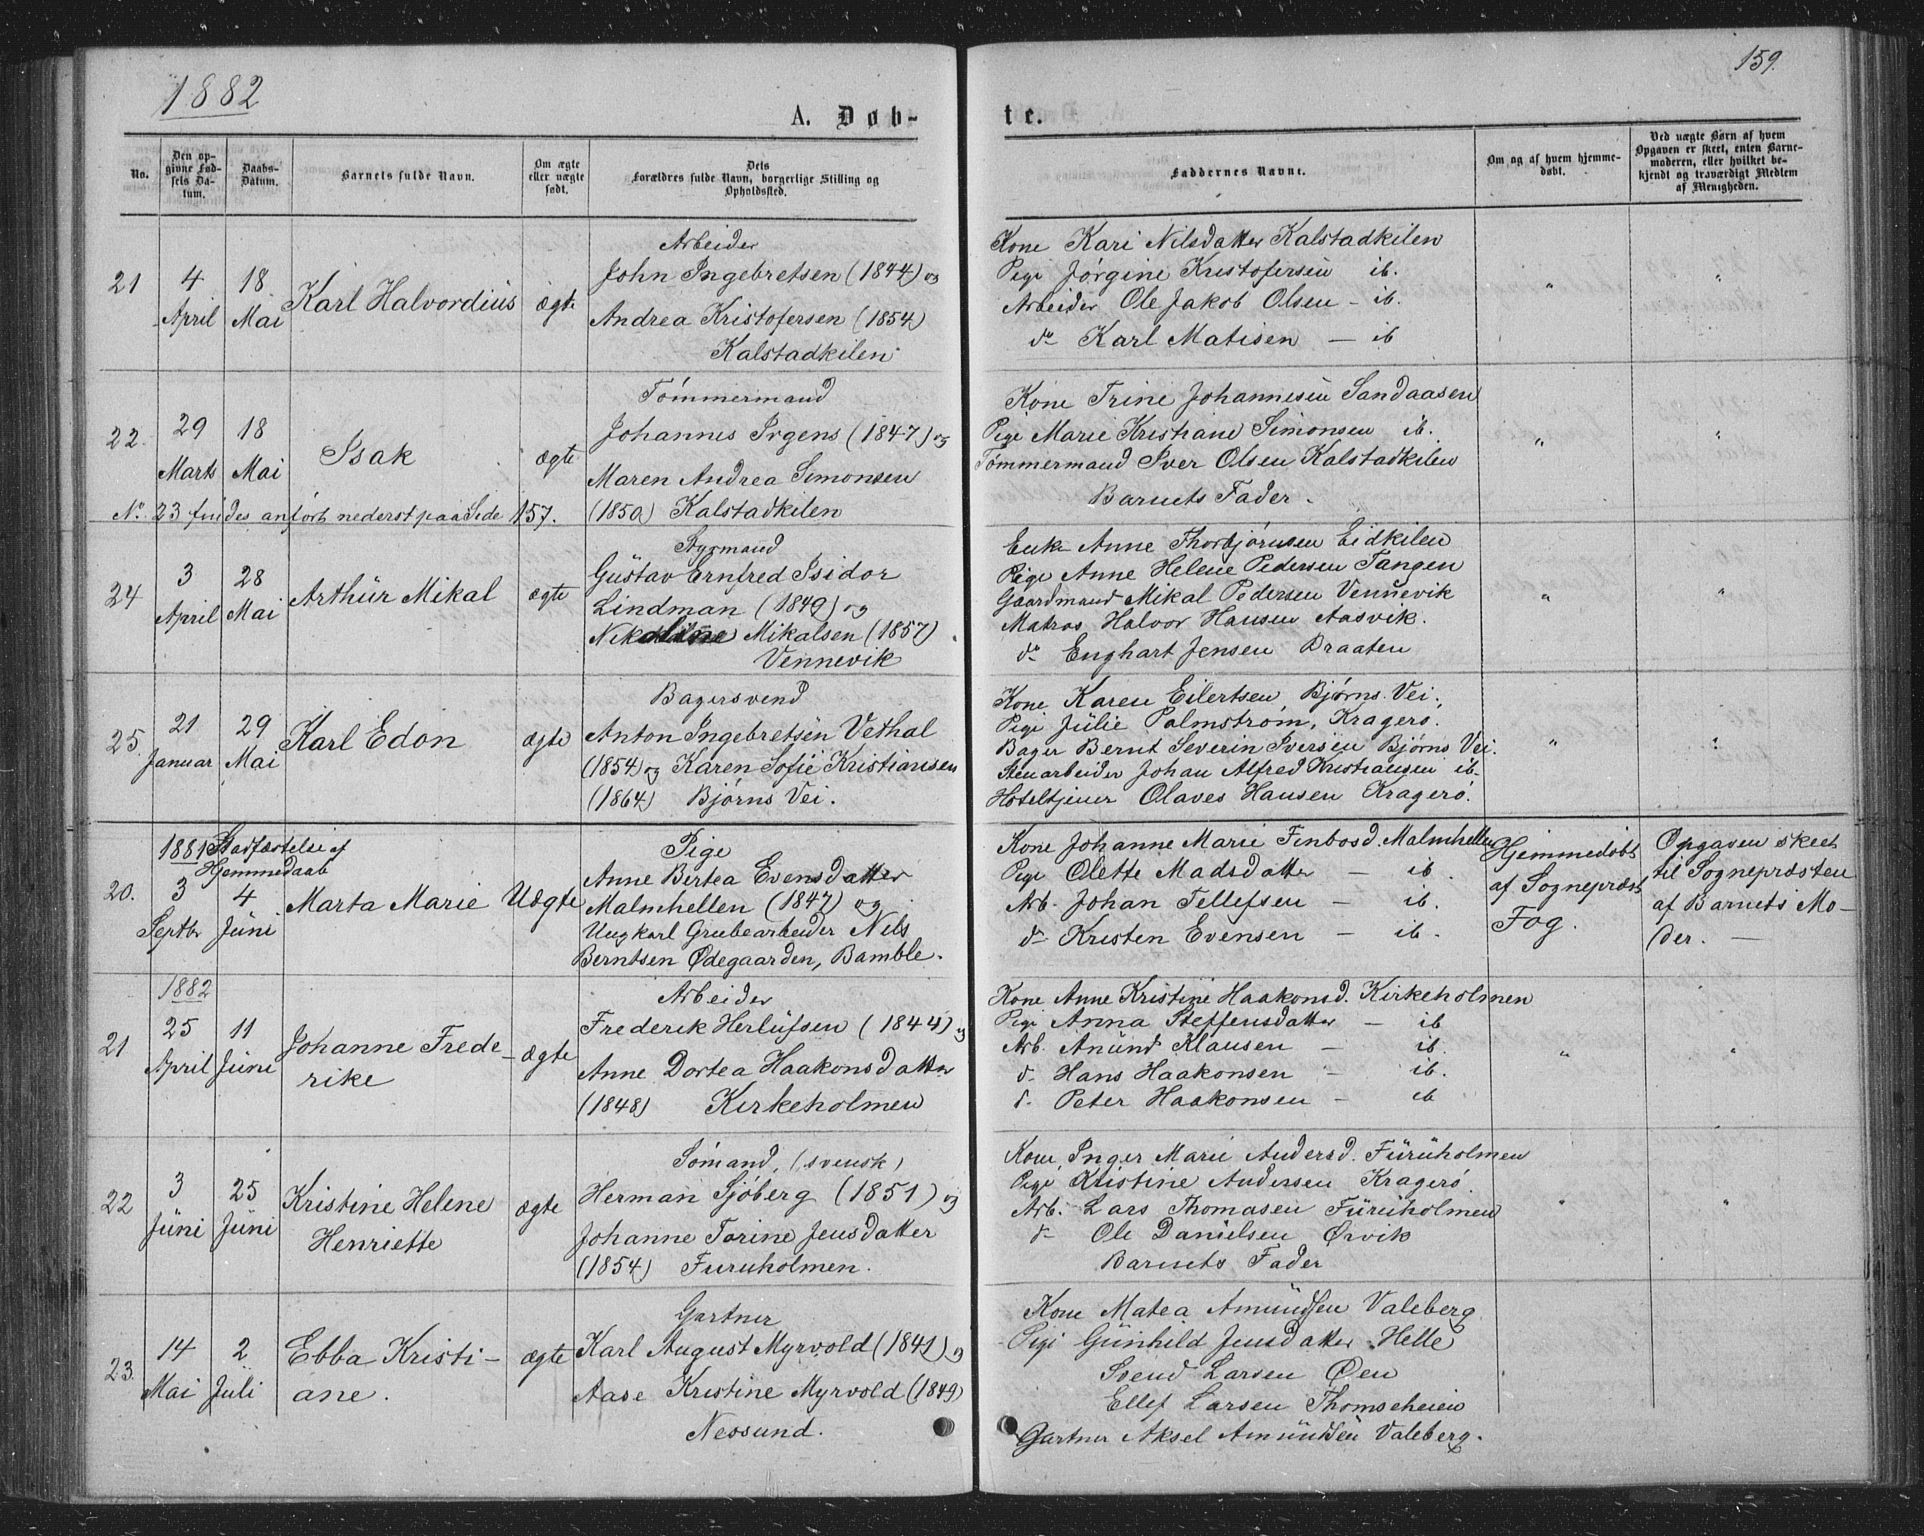 1882
159.
A. Døb-
te.
No.
Den op-
givne Fød-
sels Da-
tum.
Daabs-
Datum.
Barnets fulde Navn.
Om ægte
eller uægte
født.
Dets
Forældres fulde Navn, borgerlige Stilling og
Opholdssted.
Faddernes Navne.
Om og af hvem hjemme-
døbt.
Ved uægte Børn af hvem
Opgaven er skeet, enten Barne-
moderen, eller hvilket be-
kjendt og troværdigt Medlem
af Menigheden.
21
4
April
18
Mai
Karl Halvordius
ægte
Arbeider
John Ingebretsen (1844) og
Andrea Kristofersen (1854)
Kalstadkilen
Kone Kari Nilsdatter Kalstadkilen
Pige Jørgine Kristofersen ib.
Arbeider Ole Jakob Olsen - ib.
do Karl Matisen - ib
"
"
22.
29
Marts
18
Mai
Isak
ægte
Tømmermand
Johannes Irgens (1847) og
Maren Andrea Simonsen
(1850) Kalstadkilen
Kone Trine Johannesen Sandaasen
Pige Marie Kristiane Simonsen ib.
Tømmermand Iver Olsen Kalstadkilen
Barnets Fader.
"
"
No. 23 findes anført nederst paa Side 157.
24
3
April
28
Mai
Arthur Mikal
ægte
Styrmand
Gustav Ernfred Isidor
Lindman (1849) og
Nikoline Mikalsen (1857)
Vennevik
Enke Anne Thorbjørnsen Eidkilen
Pige Anne Helene Pedersen Tangen
Gaardmand Mikal Pedersen Vennevik
Matros Halvor Hansen Aasvik.
do Enghart Jensen Braaten
"
"
25.
21
Januar
29
Mai
Karl Edon
ægte
Bagersvend
Anton Ingebretsen Vethal
(1854) og Karen Sofie Kristiansen
(1864) Bjørns Vei.
Kone Karen Eilertsen, Bjørns Vei.
Pige Julie Palmstrøm, Kragerø.
Bager Bernt Severin Iversen Bjørns Vei.
Stenarbeider Johan Alfred Kristiansen ib.
Hoteltjener Olaves Hansen Kragerø.
"
"
20.
1881 Stadfæstelse af
Hjemmedaab
3
Septbr
4
Juni
Marta Marie
Uægte
Pige
Anne Bertea Evensdatter
Malmhellen (1847) og
Ungkarl Grubearbeider Nils
Berntsen Ødegaarden, Bamble.
Kone Johanne Marie Finbosd. Malmhellen
Pige Olette Madsdatter - ib.
Arb. Johan Tellefsen - ib.
do Kristen Evensen - ib.
Hjemmedøbt
af Sognepræst
Fog.
Opgaven skeet
til Sognepræsten
af Barnets Mo-
der. -
21
1882
25
April
11
Juni
Johanne Frede-
rike
ægte
Arbeider
Frederik Herlufsen (1844) og
Anne Dortea Haakonsdatter
(1848) Kirkeholmen
Kone Anne Kristine Haakonsd. Kirkeholmen
Pige Anna Steffensdatter - ib
Arb. Anund Klausen - ib.
d. Hans Haakonsen - ib.
d. Peter Haakonsen - ib
"
"
22
3
Juni
25
Juni
Kristine Helene
Henriette
ægte
Sømand, (svensk)
Herman Sjöberg (1851) og
Johanne Torine Jensdatter
(1854) Furuholmen.
Kone Inger Marie Andersd. Furuholmen
Pige Kristine Andersen Kragerø.
Arb. Lars Thomasen Furuholmen
d. Ole Danielsen Ørvik
Barnets Fader
"
"
23.
14
Mai
2
Juli
Ebba Kristi-
ane.
ægte
Gartner
Karl August Myrvold (1841) og
Aase Kristine Myrvold (1849)
Nessund.
Kone Matea Amundsen Valeberg
Pige Gunhild Jensdatter Helle
Svend Larsen Øen
Ellef Larsen Thomseheien
Gartner Aksel Amundsen Valeberg.